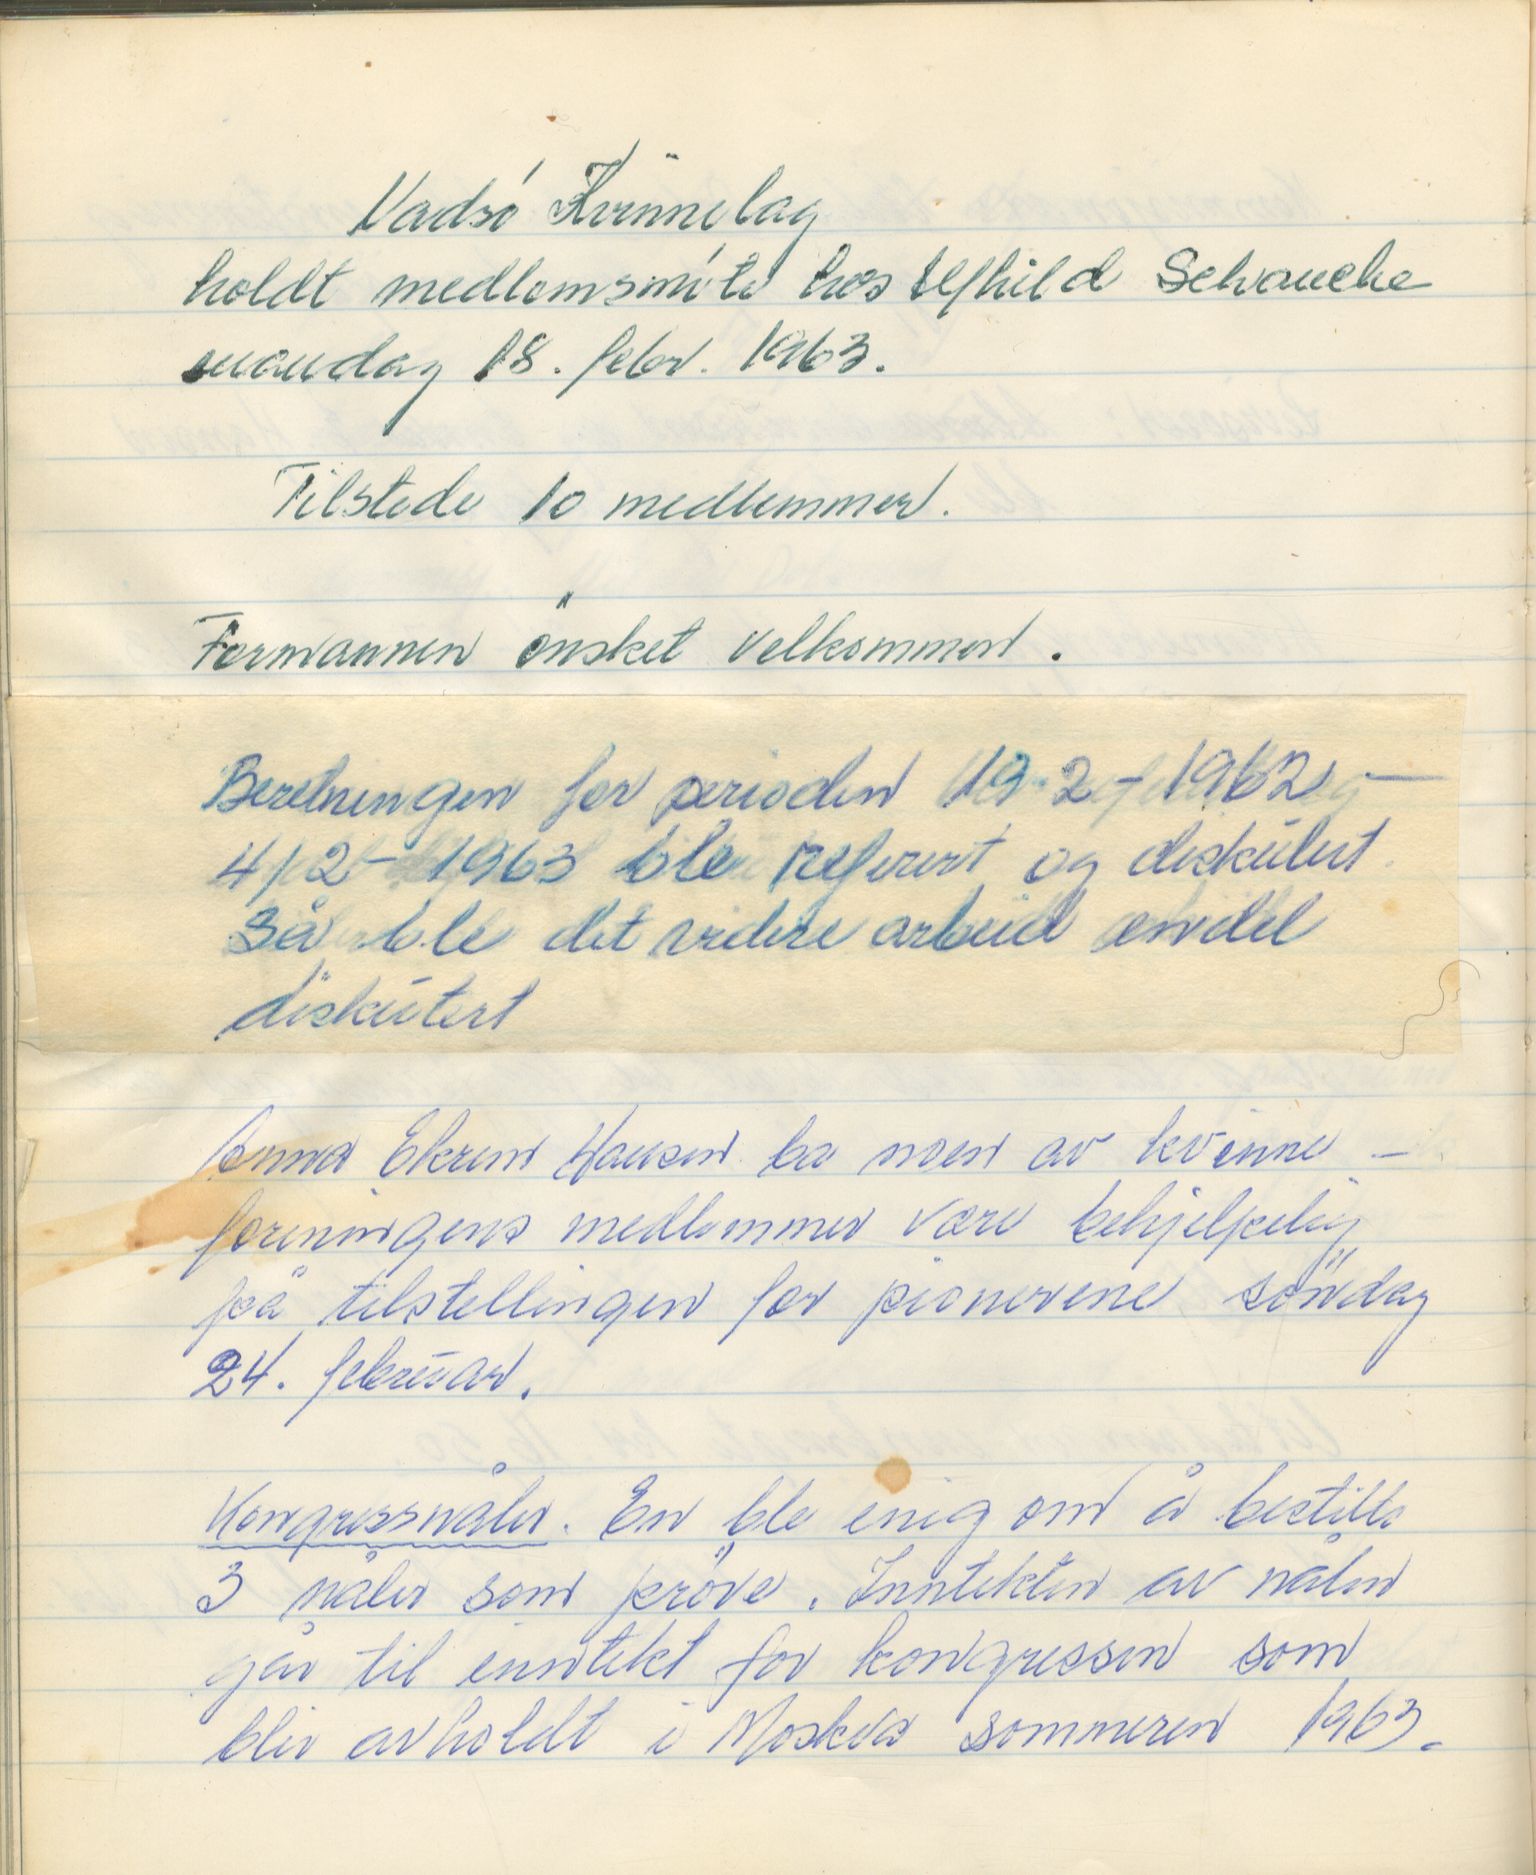 Vadsö Kvinnelag
holdt medlemsmöte hos Alfhild Schancke
mandag 18. febr. 1963.
Tilstede 10 medlemmer.
Formannen önsket velkommen.
Beretningen for perioden 19-2-1962 —
4/2-1963 ble referert og diskutert.
Så ble det videre arbeid endel
diskutert
Anna Ekren Hansen ba noen av kvinne-
foreningens medlemmer være behjelpelig
på tilstellingen for pionerene söndag
24. februar.
Kongressnåler. En ble enig om å bestille
3 nåler som pröve. Inntekten av nålen
går til inntekt for kongressen som
blir avholdt i Moskva sommeren 1963.